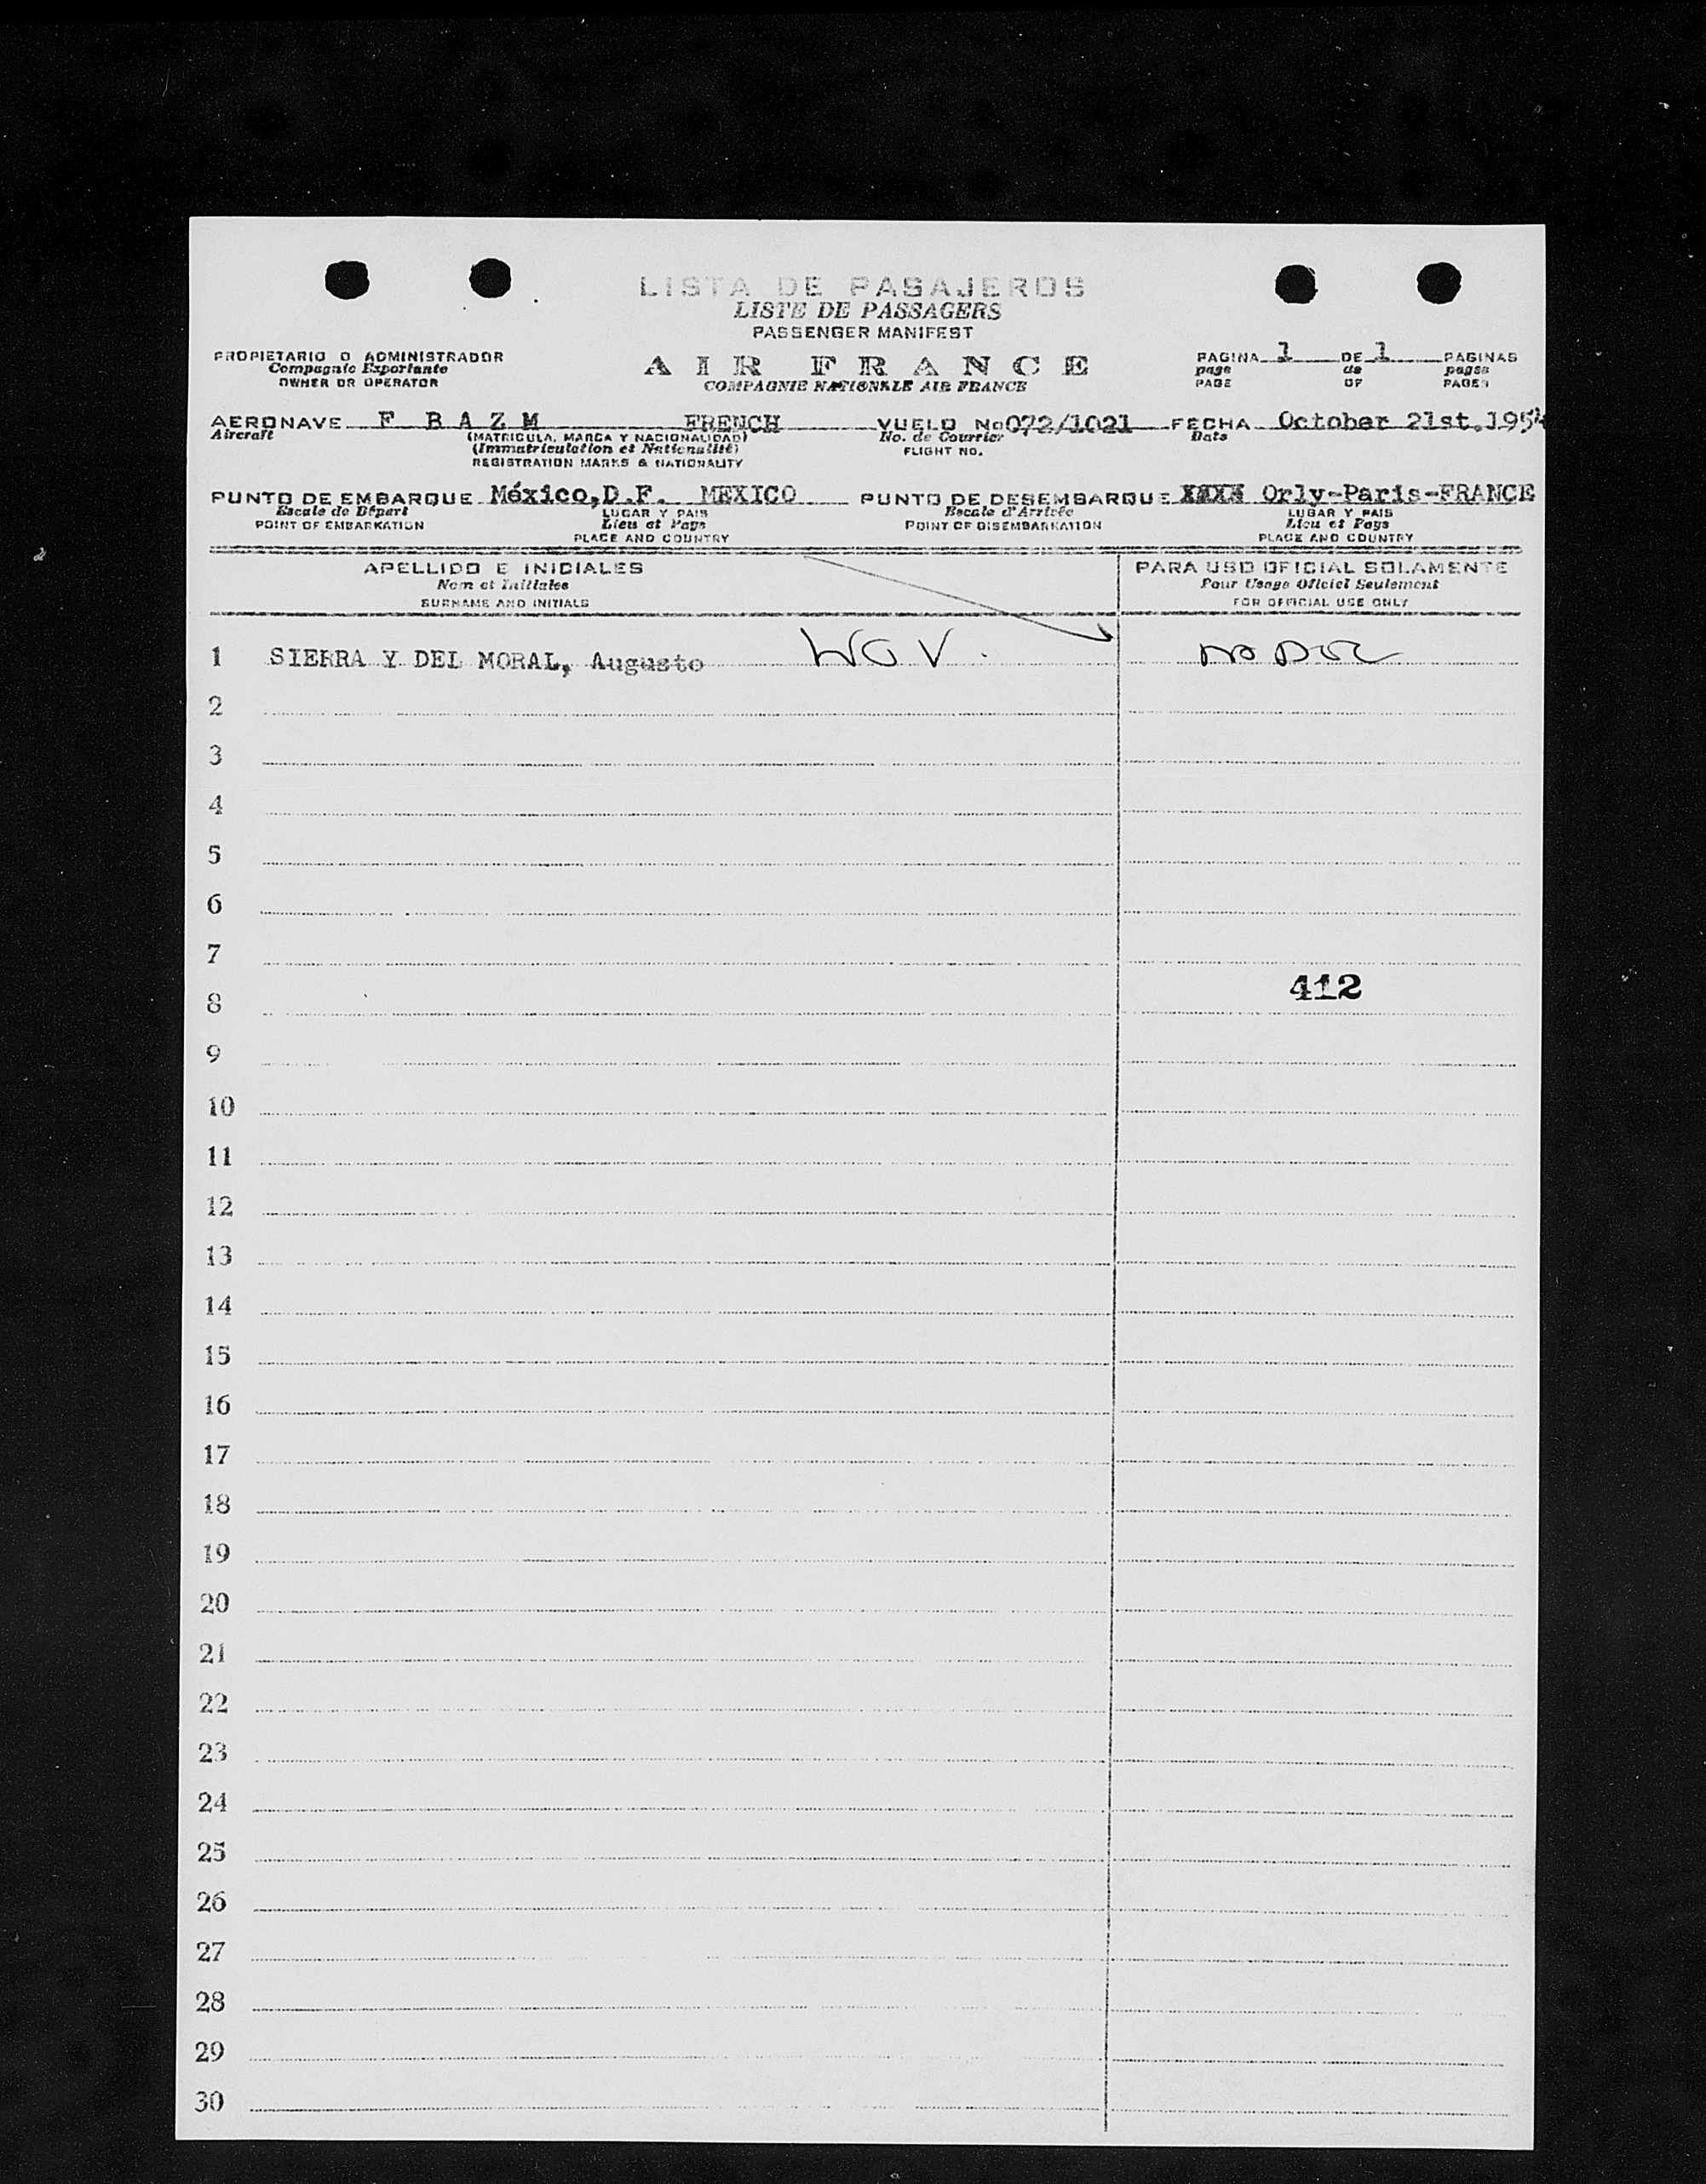 LISTA DE PASAJEROS
LISTE DE PASSAGERS
PASSENGER MANIFEST
PROPIETARIO O ADMINISTRADOR
Compagnie Exportante
OWNER OR OPERATOR
AIR FRANCE
COMPAGNIE NATIONALE AIR FRANCE
PAGINA 1 DE 1 PAGINAS
page de pages
PAGE OF PAGES
AERONAVE F B A Z M FRENCH VUELO No 072/1021 FECHA October 21st.1954
Aircraft (MATRICULA, MARCA Y NACIONALIDAD) No. de Courrier Date
(Immatriculation et Nationalité) FLIGHT NO.
REGISTRATION MARKS & NATIONALITY
PUNTO DE EMBARQUE México,D.F. MEXICO PUNTO DE DESEMBARQUE XXXX Orly-Paris-FRANCE
Escale de Départ LUGAR Y PAIS Escale d'Arrivée LUGAR Y PAIS
POINT OF EMBARKATION Lieu et Pays POINT OF DISEMBARKATION Lieu et Pays
PLACE AND COUNTRY PLACE AND COUNTRY
APELLIDO E INICIALES PARA USO OFICIAL SOLAMENTE
Nom et Initiales Pour Usage Officiel Seulement
SURNAME AND INITIALS FOR OFFICIAL USE ONLY
1 SIERRA Y DEL MORAL, Augusto WGV. no Doc
2
3
4
5
6
7
412
8
9
10
11
12
13
14
15
16
17
18
19
20
21
22
23
24
25
26
27
28
29
30